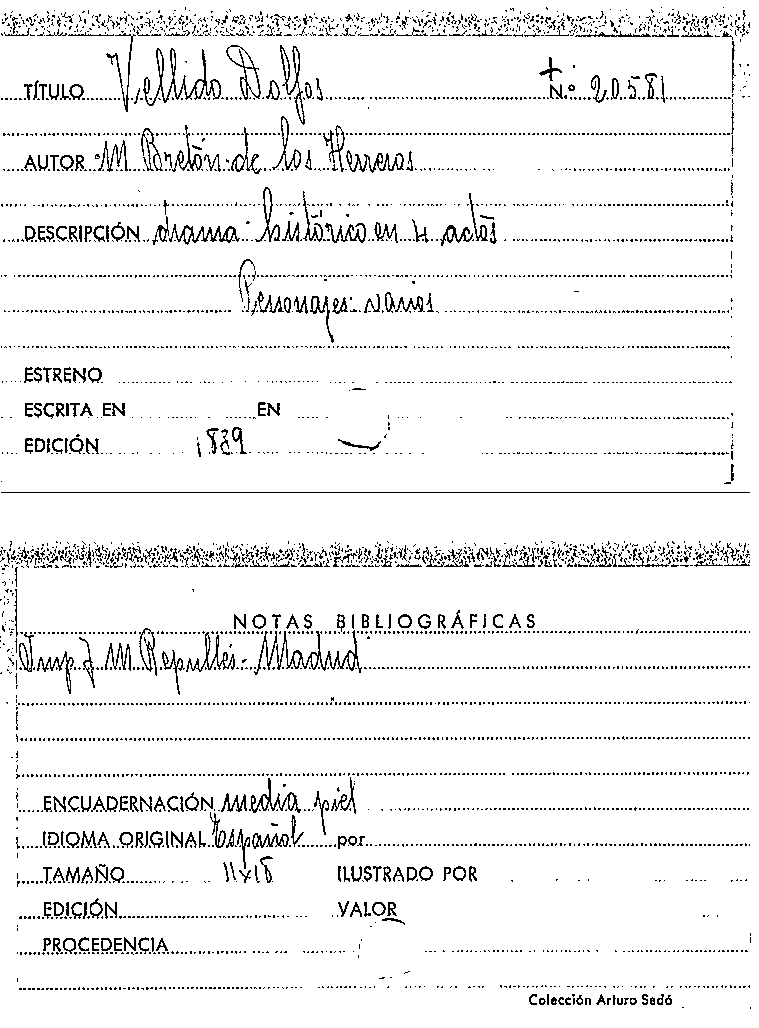 TÍTULO Vellido Dolfos + N.º 20581
AUTOR M Bretón de los Herreros
DESCRIPCIÓN drama histórico en 4 actos
Personajes varios
ESTRENO
ESCRITA EN EN
EDICIÓN 1839
NOTAS BIBLIOGRÁFICAS
Imp J M Repullés - Madrid
ENCUADERNACIÓN media piel
IDIOMA ORIGINAL Español por
TAMAÑO 11x18 ILUSTRADO POR
EDICIÓN VALOR
PROCEDENCIA
Colección Arturo Sedó